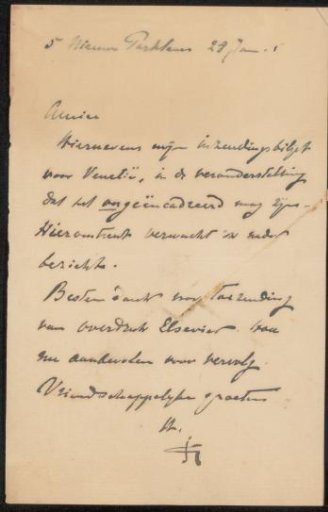 5 Nieuwe Parklaan 29 Jan.
Amice
Hiernevens mijn inzendingsbiljet
voor Venetië, in de veronderstelling
dat het ongeëncadreerd mag zijn.
Hieromtrent verwacht ik nader
berichte.
Besten dank voor toezending
van overdruk Elsevier
me aanbevolen voor vervolg.
Vriendschappelijke groeten